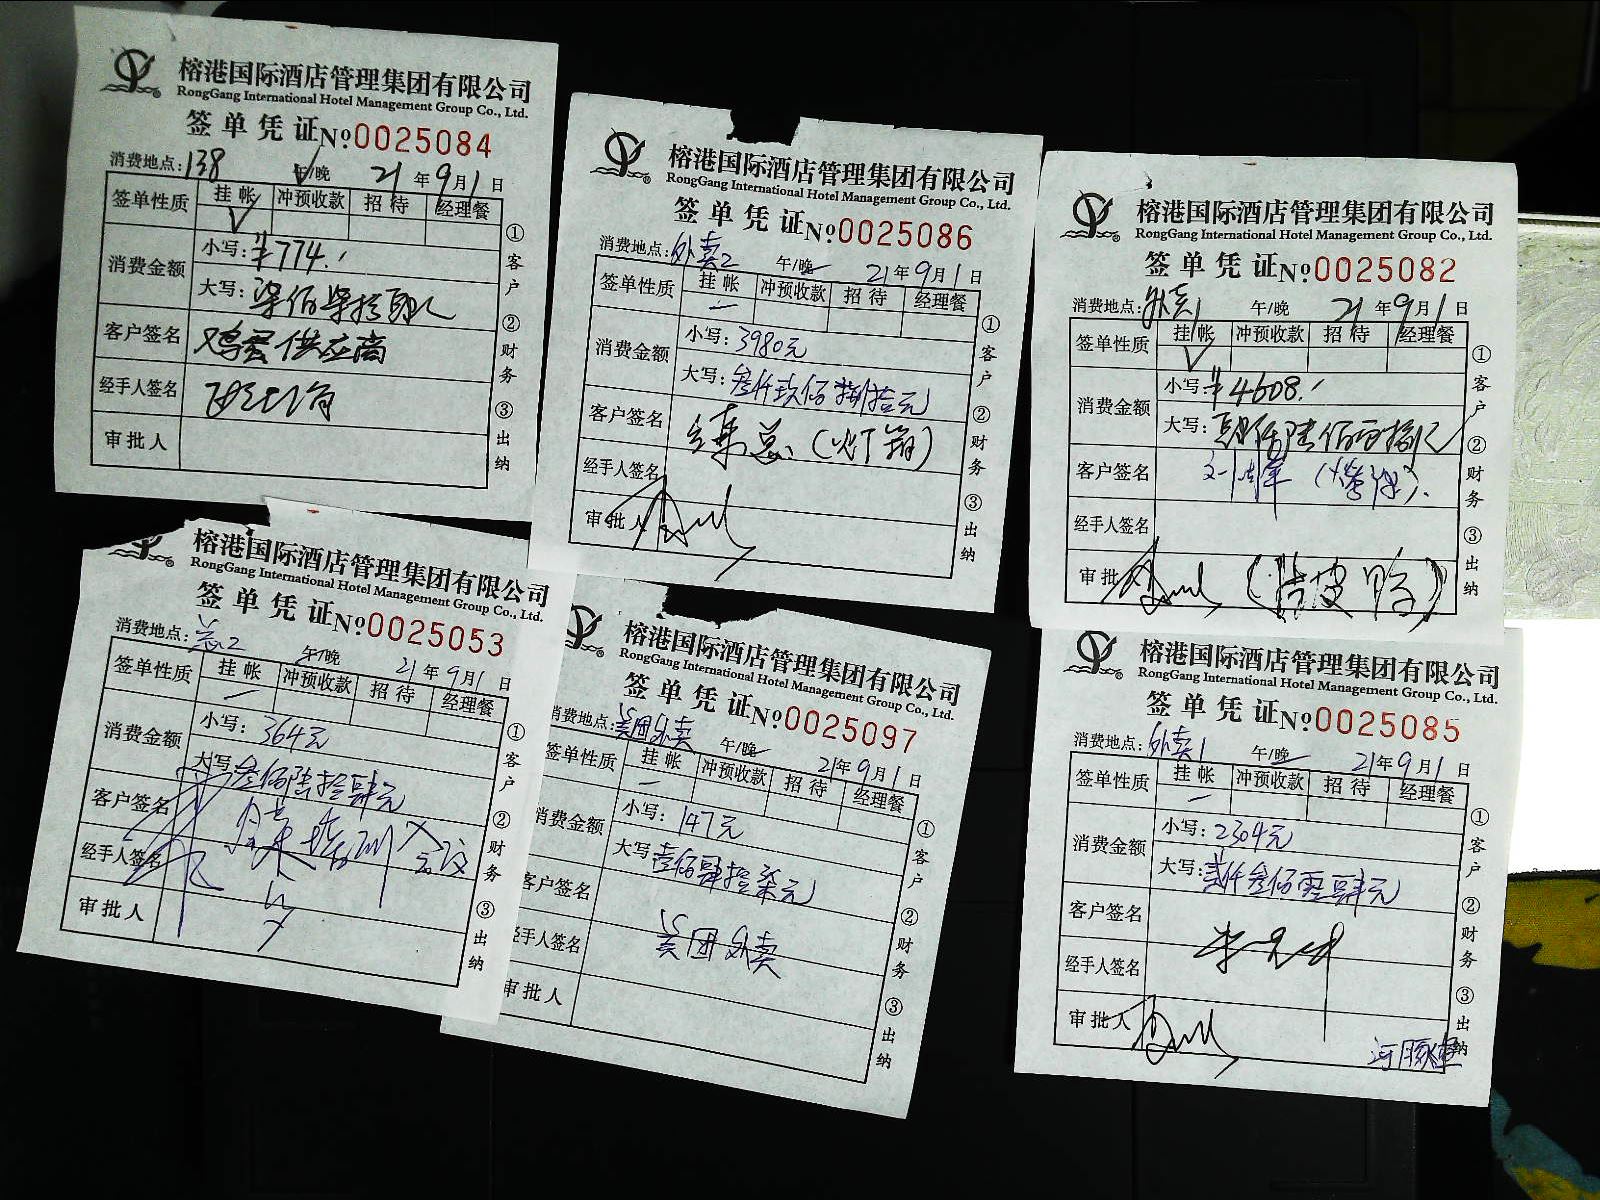 榕港国际酒店管理集团有限公司
RongGang International Hotel Management Group Co., Ltd.
签单凭证 №0025084
消费地点:138 午/晚 21年9月1日
签单性质 挂帐 冲预收款 招待 经理餐
消费金额 小写:¥774.
大写:柒佰柒拾肆元
客户签名 鸡蛋供应商
经手人签名
审批人
①客户 ②财务 ③出纳
榕港国际酒店管理集团有限公司
RongGang International Hotel Management Group Co., Ltd.
签单凭证 №0025086
消费地点:外卖2 午/晚 21年9月1日
签单性质 挂帐 冲预收款 招待 经理餐
消费金额 小写:3980元
大写:叁仟玖佰捌拾元
客户签名 总(灯箱)
经手人签名
审批人
①客户 ②财务 ③出纳
榕港国际酒店管理集团有限公司
RongGang International Hotel Management Group Co., Ltd.
签单凭证 №0025082
消费地点:外卖1 午/晚 21年9月1日
签单性质 挂帐 冲预收款 招待 经理餐
消费金额 小写:¥4608.
大写:肆仟陆佰零捌元
客户签名
经手人签名
审批
①客户 ②财务 ③出纳
榕港国际酒店管理集团有限公司
RongGang International Hotel Management Group Co., Ltd.
签单凭证 №0025053
消费地点:兰2 午/晚 21年9月1日
签单性质 挂帐 冲预收款 招待 经理餐
消费金额 小写:364元
大写:叁佰陆拾肆元
客户签名 培训会议
经手人签名
审批人
①客户 ②财务 ③出纳
榕港国际酒店管理集团有限公司
RongGang International Hotel Management Group Co., Ltd.
签单凭证 №0025097
消费地点:美团外卖 午/晚 21年9月1日
签单性质 挂帐 冲预收款 招待 经理餐
消费金额 小写:147元
大写:壹佰肆拾柒元
客户签名
经手人签名 美团外卖
审批人
①客户 ②财务 ③出纳
榕港国际酒店管理集团有限公司
RongGang International Hotel Management Group Co., Ltd.
签单凭证 №0025085
消费地点:外卖1 午/晚 21年9月1日
签单性质 挂帐 冲预收款 招待 经理餐
消费金额 小写:2304元
大写:贰仟叁佰零肆元
客户签名
经手人签名
审批人
河豚
①客户 ②财务 ③出纳